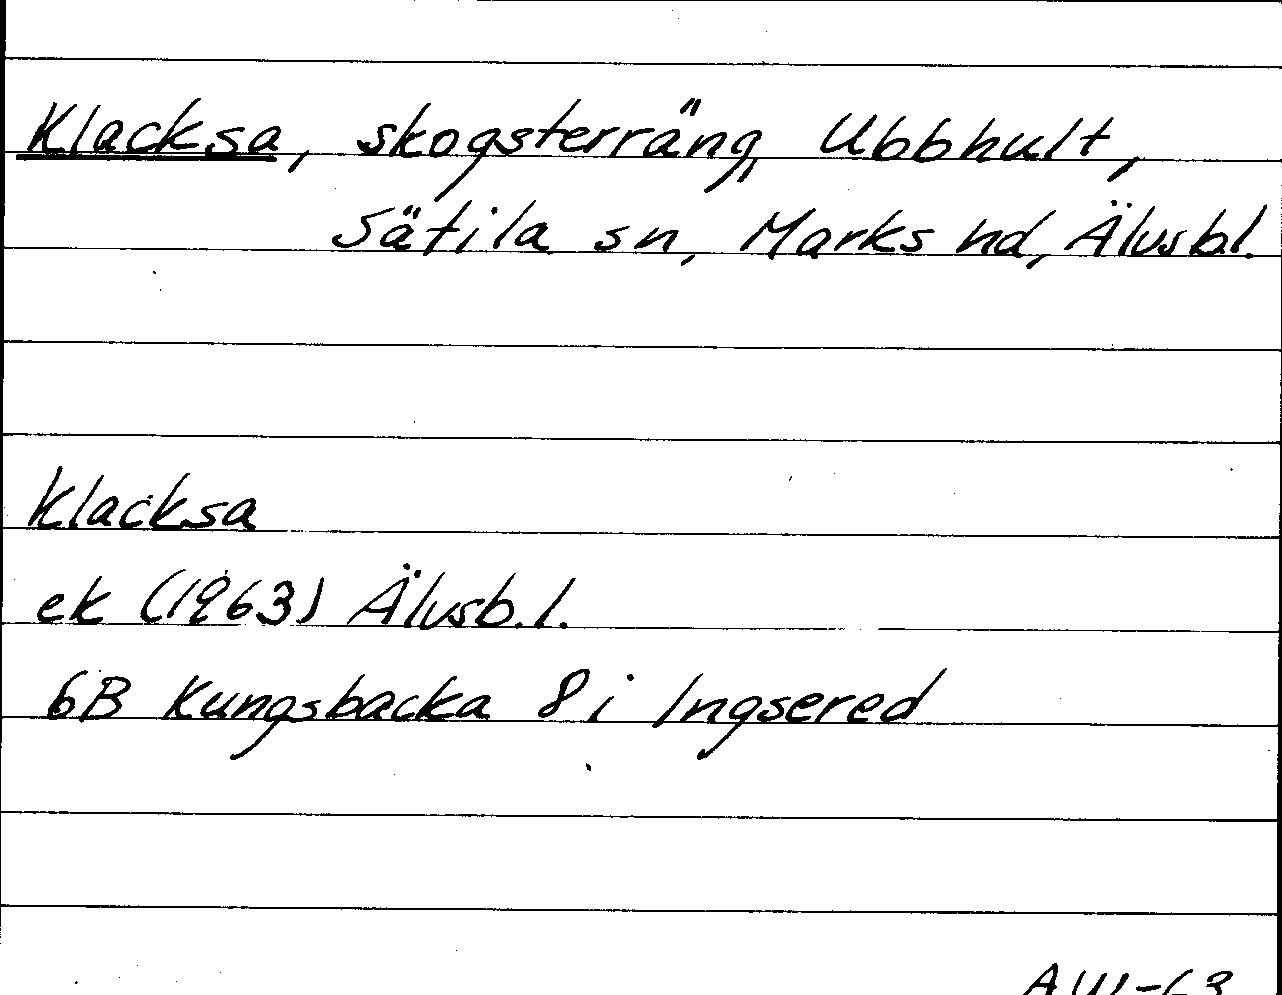 Klacksa, skogsterräng, Ubbhult,
Sätila sn, Marks hd, Älvsb.l.
Klacksa
ek (1963) Älvsb.l.
6B Kungsbacka 8i Ingsered